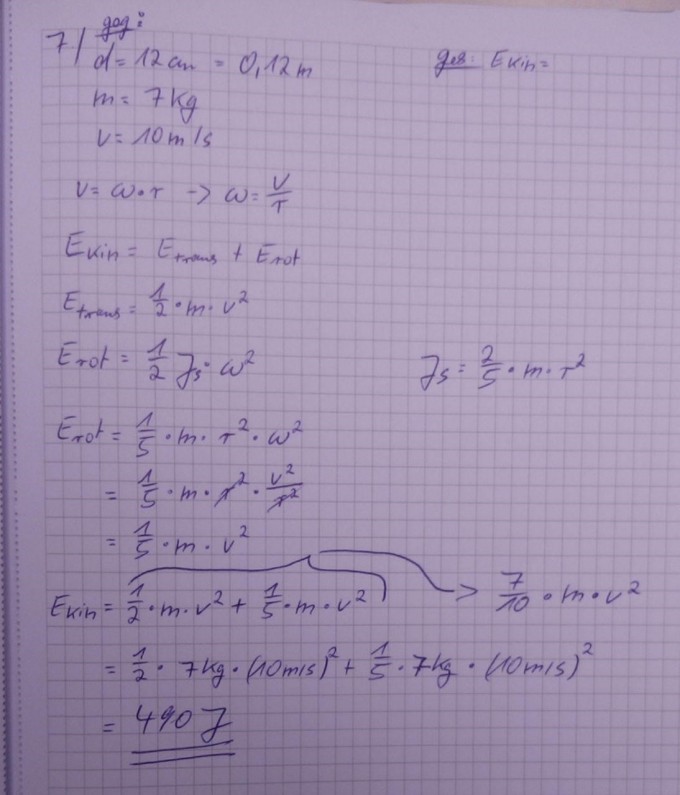 7/ geg:
d = 12 cm = 0,12 m
ges: Ekin =
m = 7 kg
v = 10 m/s
v = ω · r -> ω = v/r
Ekin = Etrans + Erot
Etrans = 1/2 · m · v²
Erot = 1/2 Js · ω²
Js = 2/5 · m · r²
Erot = 1/5 · m · r² · ω²
= 1/5 · m · r² · v²/r²
= 1/5 · m · v²
Ekin = 1/2 · m · v² + 1/5 · m · v² -> 7/10 · m · v²
= 1/2 · 7 kg · (10 m/s)² + 1/5 · 7 kg · (10 m/s)²
= 490 J